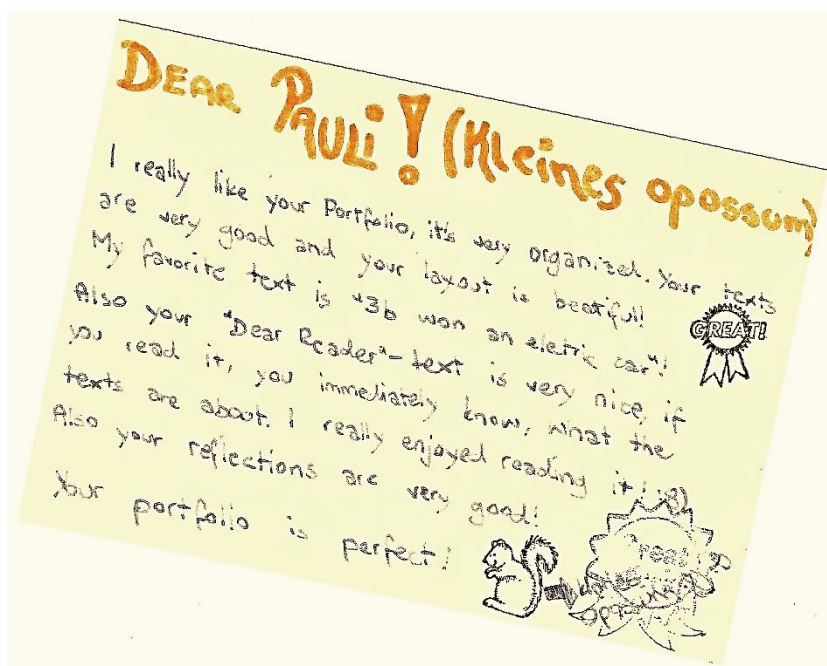 DEAR PAULI! (Kleines opossum)
I really like your Portfolio, it's very organized. Your texts
are very good and your layout is beatiful!
My favorite text is "3b won an eletric car"!
GREAT!
Also your "Dear Reader"-text is very nice, if
you read it, you immediately know, what the
texts are about. I really enjoyed reading it! :8)
Also your reflections are very good!
Your portfolio is perfect!
Great
opossum